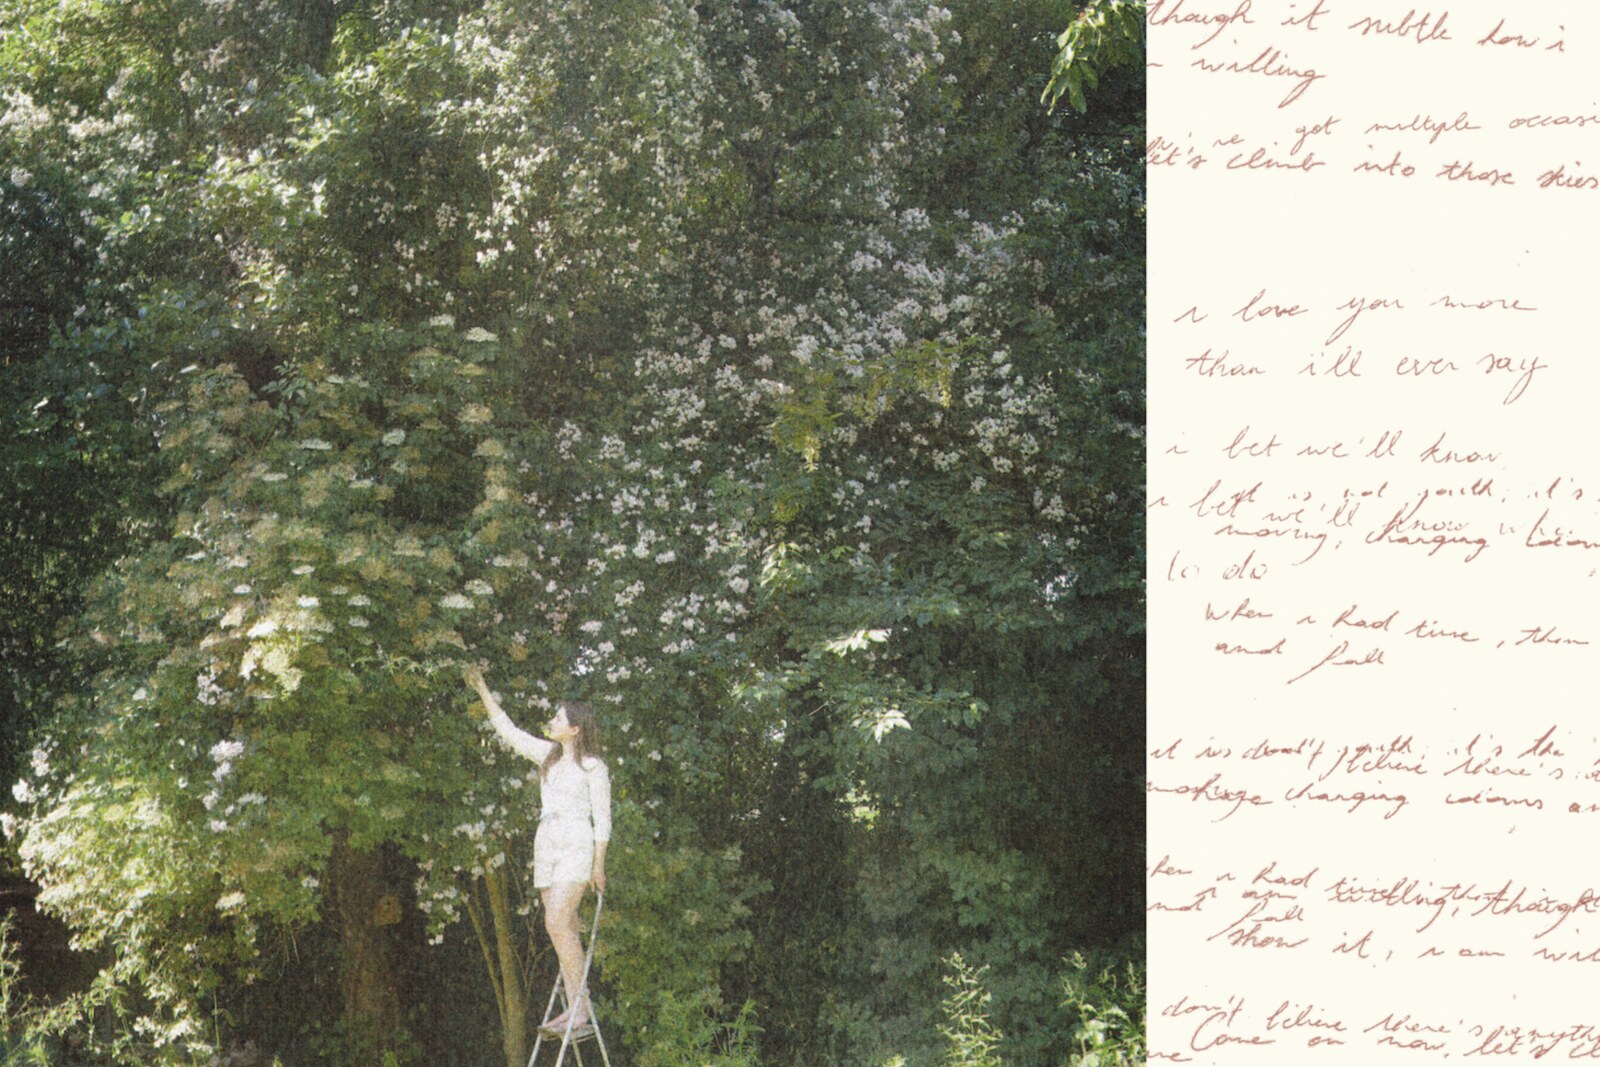 though it subtle how i
willing
we've got multiple occasi
let's climb into those skies
i love you more
than i'll ever say
i bet we'll know
it is not youth, it's
i bet we'll know
moving, changing
to do
when i had time, then
and fall
it is youth, it's
don't believe there's
changing idioms an
when i had time
i am willing, though
and fall
show it, i am wil
don't believe there's anyth
Come on now, let's cl
me